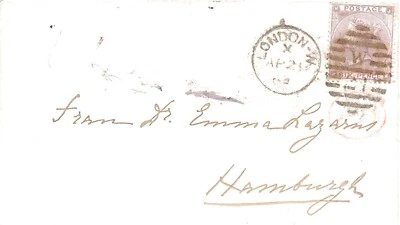 POSTAGE
SIX PENCE
LONDON-W
X
AP 2
W
Frau Dr. Emma Lazarus
Hamburgh